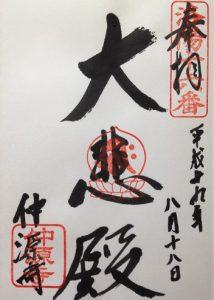 奉拝
平成十九年
八月十八日
大悲殿
仲源寺
仲源寺